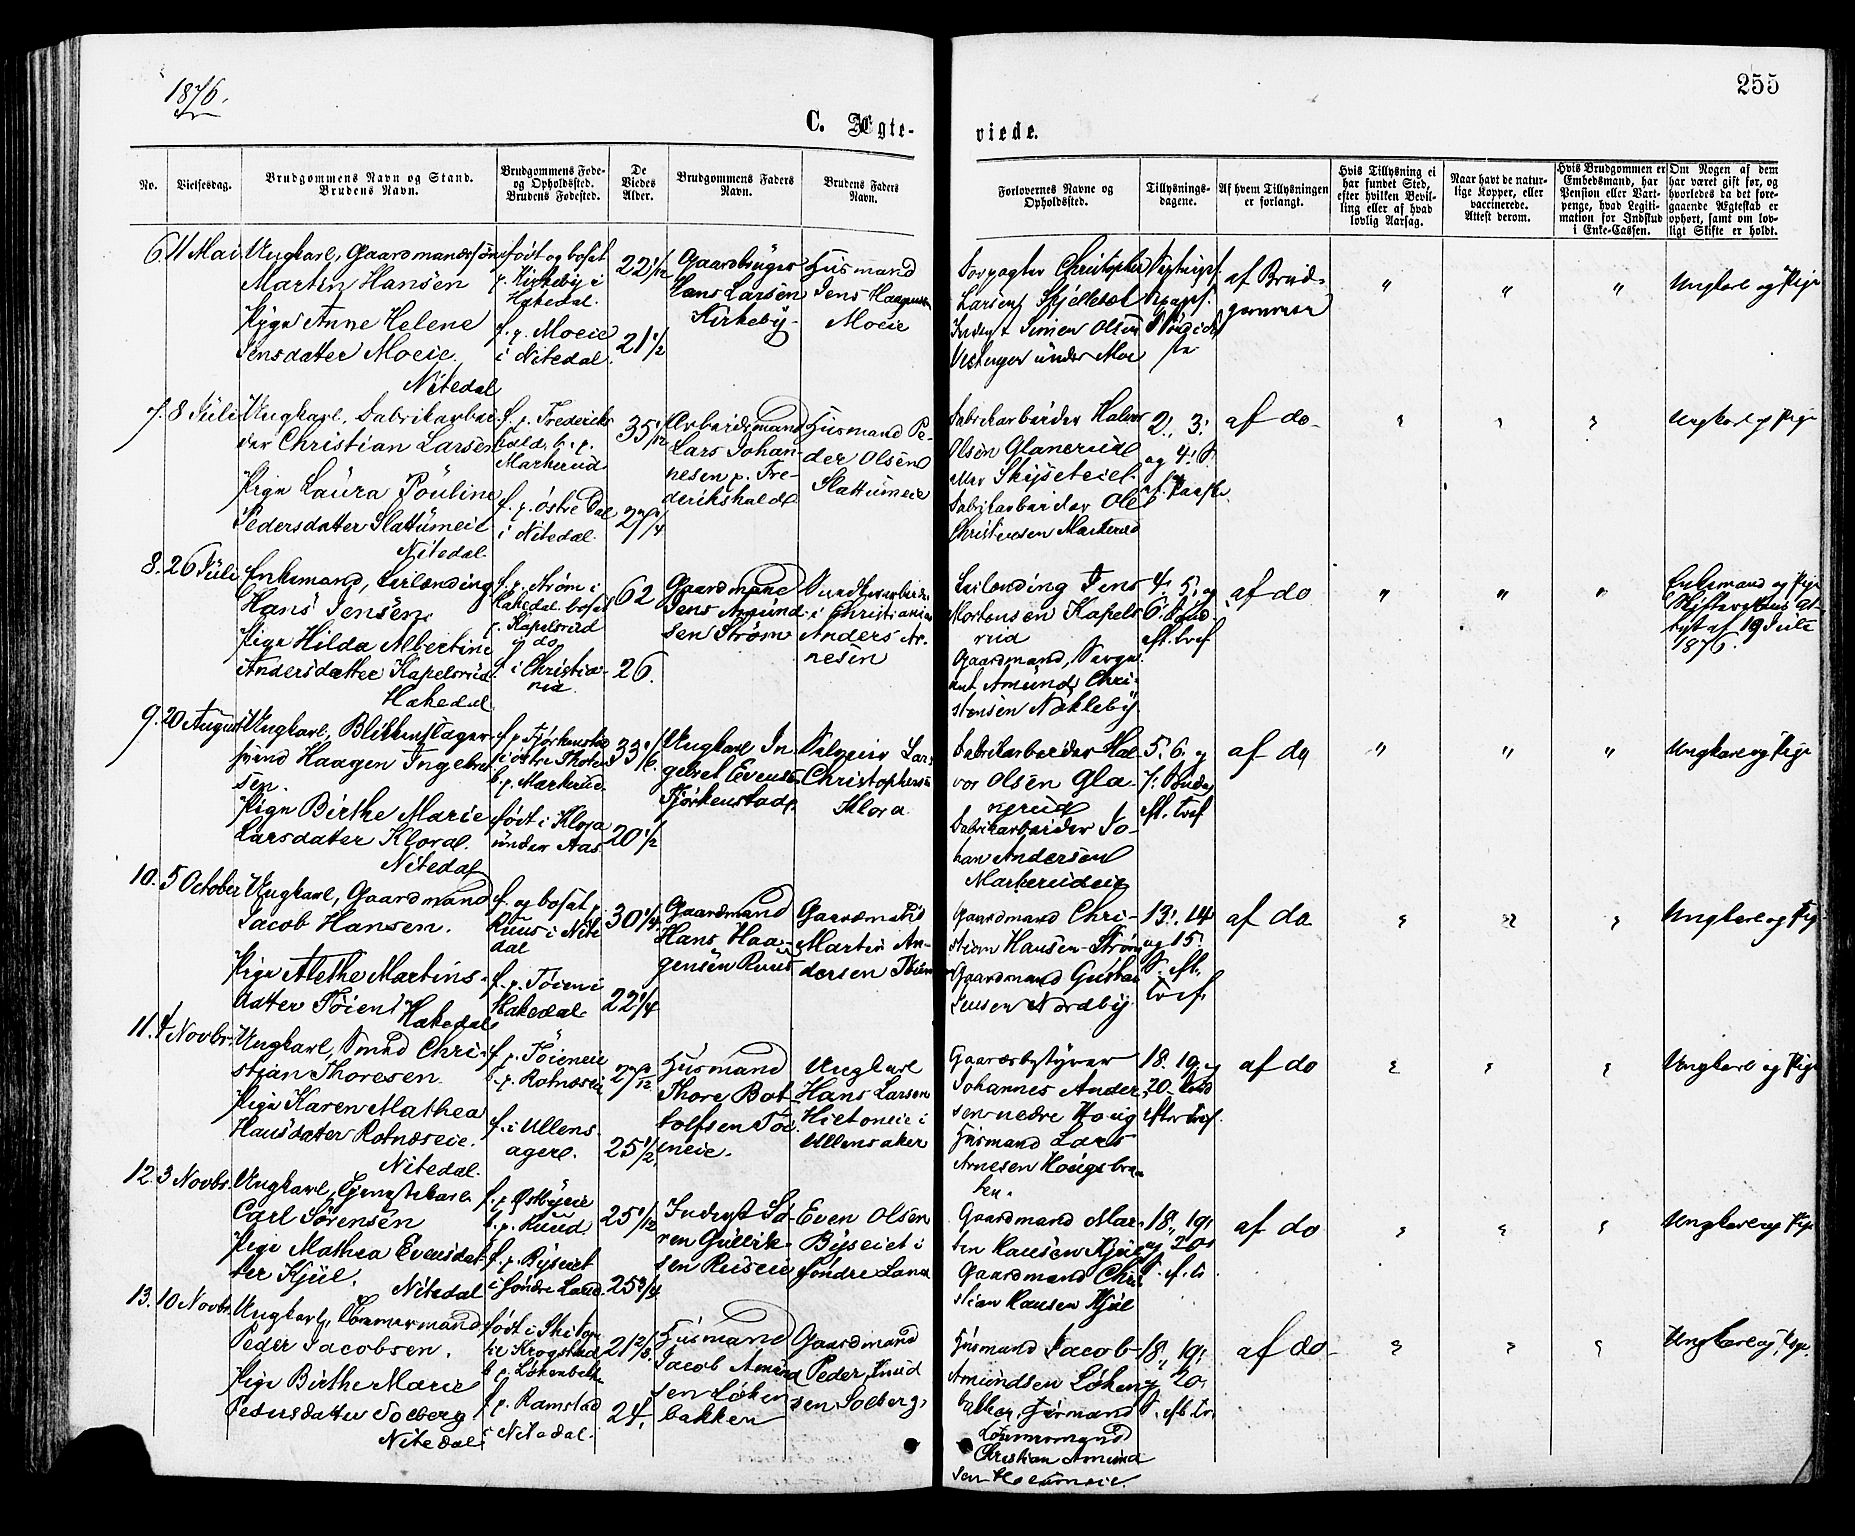 1876.
255
C. Ægte-
viede.
No.
Vielsesdag.
Brudgommens Navn og Stand.
Brudens Navn.
Brudgommens Føde-
og Opholdssted.
Brudens Fødested.
De
Viedes
Alder.
Brudgommens Faders
Navn.
Brudens Faders
Navn.
Forlovernes Navne og
Opholdssted.
Tillysnings-
dagene.
Af hvem Tillysningen
er forlangt.
Hvis Tillysning ei
har fundet Sted,
efter hvilken Bevil-
ling eller af hvad
lovlig Aarsag.
Naar havt de natur-
lige Kopper, eller
vaccinerede.
Attest derom.
Hvis Brudgommen er
Embedsmand, har
Pension eller Vart-
penge, hvad Legiti-
mation for Indskud
i Enke-Cassen.
Om Nogen af dem
har været gift før, og
hvorledes da det fore-
gaaende Ægteskab er
ophørt, samt om lov-
ligt Skifte er holdt.
6. 11 Mai
Ungkarl, Gaardmandssøn
Martin Hansen
Pige Anne Helene
Jensdatter Moeie.
Nitedal
født og bosat
p. Kirkeby i
Hakedal.
f. p. Moeie
i Nitedal
22 1/12
21 1/2
Gaardbruger
Hans Larsen
Kirkeby
Husmand
Jens Haagensen
Moeie
Forpagter Christopher
Larsen Skjellebæk
Inderst Simen Olsen
under Moe
af Brud-
gommen
" " "
Ungkarl og Pige
7. 8 Juli
Ungkarl, Fabrikarbei-
der Christian Larsen
Pige Laura Pouline
Pedersdatter Slattumeie
Nitedal
f. p. Frederiks
hald, b. p.
Markerud
f. p. østre Dal
i Nitedal.
35 1/12
27 1/4
Arbeidsmand
Lars Johan-
nesen p. Fre-
derikshald
Husmand Pe-
der Olsen
Slattumeie
Fabrikarbeider Halvor
Olsen Glanerud
Fabrikarbeider Ole
Christensen Markerud
2., 3.
og 4. S.
af do
Ungkarl og Pige
8. 26 Juli
Enkemand, Leilænding
Hans Jensen.
Pige Hilda Albertine
Andersdatter Kapelsrud
Hakedal
f. p. Strøm i
Hakedal bosat
p. Kapelsrud
i do
f. i Christia-
nia.
62
26.
Gaardmand
Jens Amund-
sen Strøm
i Christiania
Anders Ar-
nesen
Leilænding Jens
Mortensen Kapels
rud
Gaardmand, Serge
ant Amund Chri-
stensen Nækleby
4, 5. og
6. Sønd
eft. tref.
af do
" " "
Enkemand og Pige
Skifterettens At-
test af 19 Juli
1876.
9. 20 August
Ungkarl, Blikkenslager
svend Haagen Ingebret
sen.
Pige Birthe Marie
Larsdatter Kloral.
Nitedal
i østre Thoten
b. p. Markerud.
født i Klora
under Aas
33 1/6.
20 1/2
Ungkarl In-
gebret Evensen
Lars
Christophersen
Klora
Fabrikarbeider Hal
vor Olsen Gla-
nerud
Fabrikarbeider Jo-
han Andersen
Markerudeie
5. 6. og
7. Søndag
eft. tref
af do
" " "
Ungkarl og Pige
10. 5 October
Ungkarl, Gaardmand
Jacob Hansen.
Pige Alethe Martins-
datter Tøien
Hakedal
f. og bosat p.
Ruus i Nite
dal
f. p. Tøien i
Hakedal
30 1/4
22 1/4
Gaardmand
Hans Haa-
gensen Ruus
Gaardmand
Martin An-
dersen Tøien
Gaardmand Chri-
stian Hansen Strøm
Gaardmand Gustav
Jensen Nordby
13. 14
og 15.
S. eft.
tref.
af do
Ungkarl og Pige
11. 4 Novbr.
Ungkarl, Smed Chri-
stian Thoresen.
Pige Karen Mathea
Hansdatter Rotnæseie.
Nitedal.
f. p. Tøieneie
b. p. Rotnæseie
f. i Ullens-
ager.
25 1/2
Husmand
Thore Bot-
tolfsen Tøi-
eneie.
Ungkarl
Hans Larsen
i
Ullensaker
Gaardsbestyrer
Johannes Ander
sen nedre Houg
Husmand Lars
Arnesen Hougsbra-
ten.
18. 19. og
20. Sønd
efter tref.
af do
Ungkarl og Pige
12. 3 Novbr.
Ungkarl, Tjenestekarl
Carl Sørensen
Pige Mathea Evensdat
ter Kjul.
Nitedal
f. p. Østbyeie
b. p. Ruud.
f. p. Byseiet
i søndre Land.
25 1/12
25 3/4
Inderst Sø-
ren Gullik-
sen Ruseie
Even Olsen
Byseiet i
søndre Land
Gaardmand Mar-
ten Hansen Kjul
Gaardmand Chri
stian Hansen Kjul
18., 19.
og 20.
S. ef. t.
af do
Ungkarl og Pige
13. 10 Novbr.
Ungkarl, Tømmermand
Peder Jacobsen.
Pige Birthe Marie
Pedersdatter Solberg
Nitedal
født i Skitop
eie Krogstad
b. p. Løkenbakk
f. p. Ramstad
i Nitedal.
24.
Husmand
Jacob Amund
sen Løken
bakken
Gaardmand
Peder Knud
sen Solberg.
Husmand Jacob
Amundsen Løken
bakken. Husmand
Tømmermand
Christian Amund
sen
18., 19.
og 20.
S. eft. tr.
af do
Ungkarl og Pige.